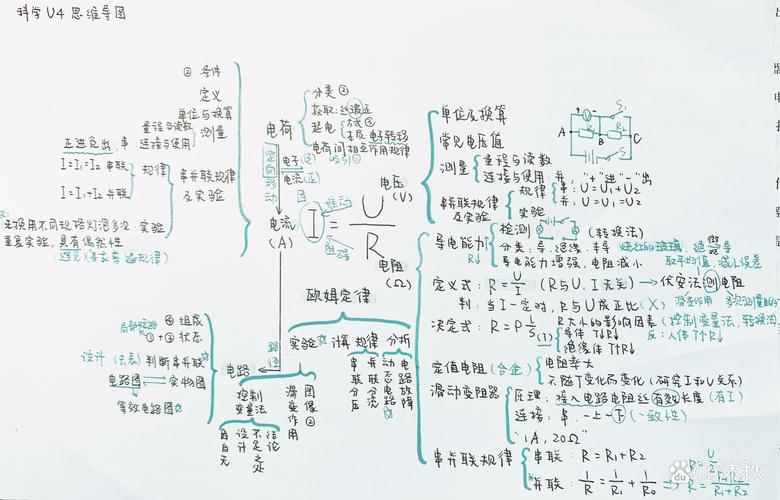 科学 U4 思维导图
② 条件
定义
单位与换算
量程与读数
连接与使用
测量
正进负出，串
I=I₁=I₂ 串联
I=I₁+I₂ 并联
规律
串并联规律
及实验
换用不同规格灯泡多次
实验
重复实验，具有偶然性
(避免)(寻求普遍规律)
电荷
分类②
获取：丝玻正
起电
方式③
本质：电子转移
电荷间相互作用规律
定向移动
电子(逆)
电流(正)
电流
(A)
推动
阻碍
I = U/R
电压
(V)
电阻
(Ω)
单位及换算
常见电压值
测量
量程与读数
连接与使用：并，"+"进"-"出
串并联规律
及实验
规律
串：U=U₁+U₂
并：U=U₁=U₂
实验
S₁
A
B
C
R₁
R₂
S
导电能力
R↓
检测
(转换法)
分类：导、绝缘、半导
烧红的玻璃
导电能力增强，电阻减小
取平均值，减小误差
定义式：R=U/I (R与U、I无关) → 伏安法测电阻
判：当I一定时，R与U成正比(X)
滑变作用
多次测量的
决定式：R=ρL/S
R大小的影响因素(控制变量法，转换法)
(T)
导体T↑R↑
绝缘体T↑R↓
反：人体T↑R↓
定值电阻(合金)
电阻率大
不随T变化而变化(研究I和U关系)
滑动变阻器
原理：接入电路电阻丝有效长度(有I)
连接：串，一上一下(一致性)
"1A，20Ω"
串并联规律
串联：R=R₁+R₂
并联：1/R=1/R₁+1/R₂ ⇒ R=
欧姆定律
实验
计算
规律
分析
串联分压
并联分流
动态电路
电路故障
控制变量法
滑变作用
图像②
目的 无
设计
不足之处
结论
路径
电路
④ 组成
局部短路
①+③ 状态
设计(去表)判断串并联
电路图 ⇌ 实物图
等效电路图